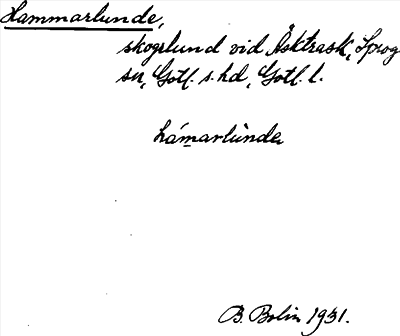 Hammarlunde,
skogslund vid Äsktrask, Sprog
sn, Gotl. s. hd, Gotl. l.
hámarlùnde
B. Bolin 1931.